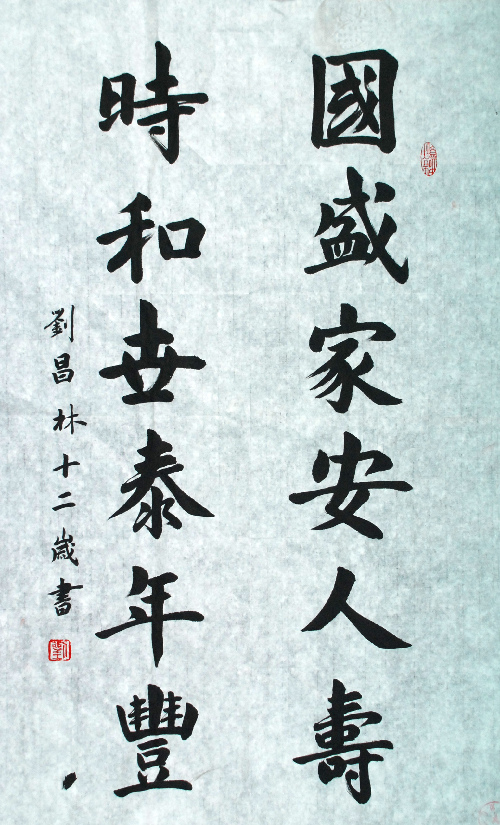 國盛家安人壽
時和世泰年豐
劉昌林十二歲書